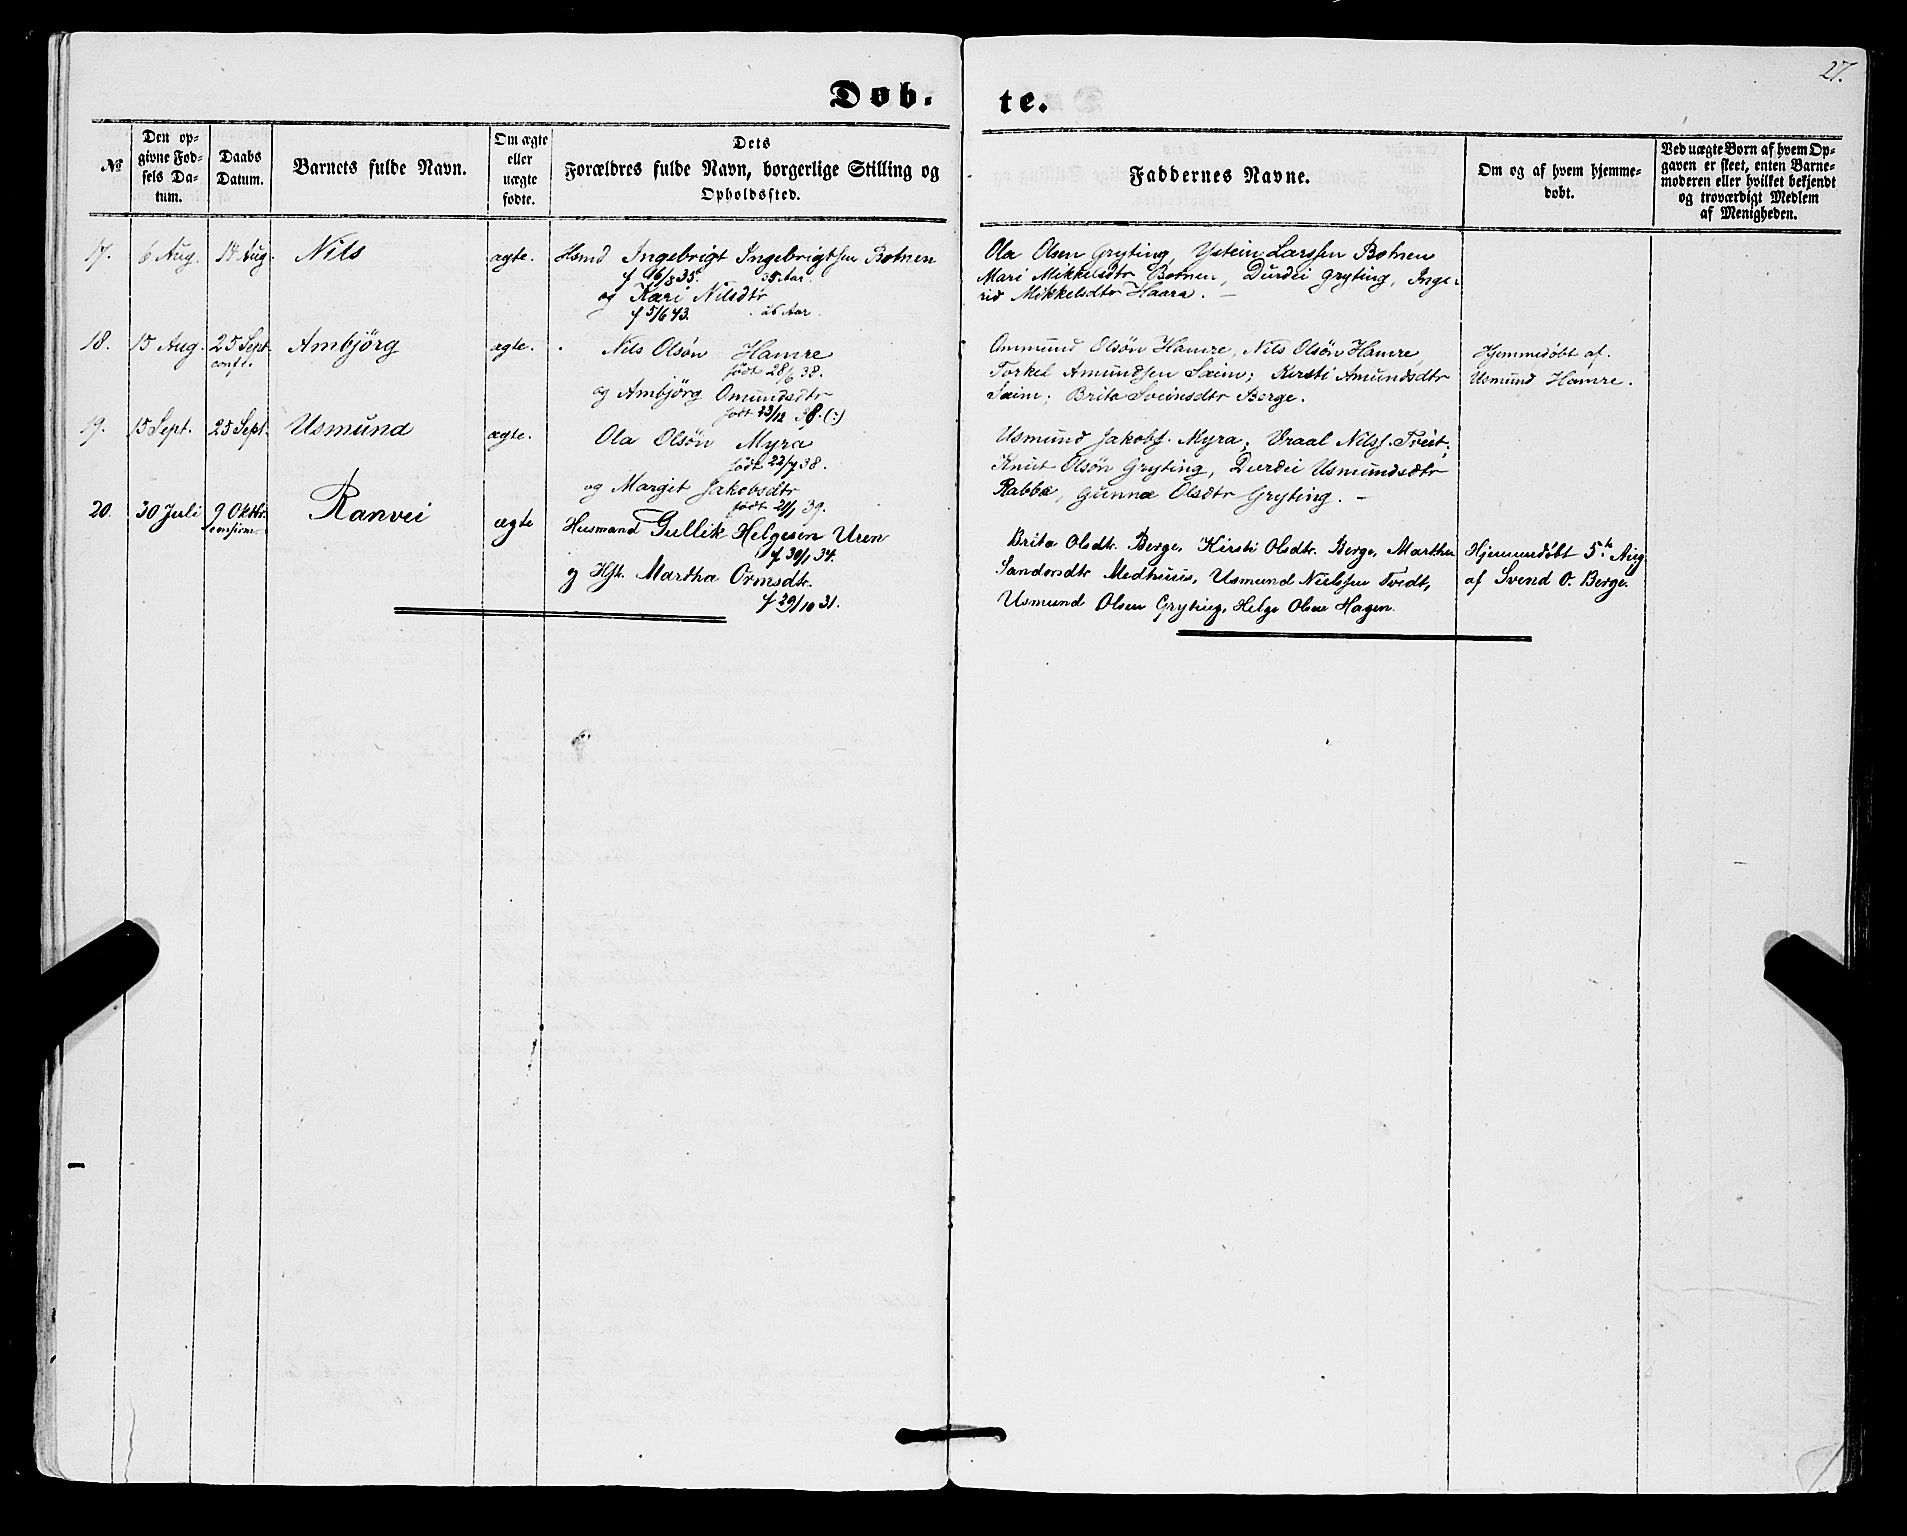 27.
Døb. te.
№
Den op-
givne Fød-
sels Da-
tum.
Daabs
Datum.
Barnets fulde Navn.
Om ægte
eller
uægte
fødte.
Dets
Forældres fulde Navn, borgerlige Stilling og
Opholdssted.
Faddernes Navne.
Om og af hvem hjemme-
døbt.
Ved uægte Børn af hvem Op-
gaven er skeet, enten Barne-
moderen eller hvilket bekjendt
og troværdigt Medlem
af Menigheden.
17. 6 Aug. 14 Aug. Nils ægte. Hsmd Ingebrigt Ingebrigtsen Botnen
35 Aar
og Kari Nilsdtr
f 5/6 43. 26 Aar
Ola Olsen Gryting, Ystein Larssen Botnen
Mari Mikkelsdtr Botnen, Durdei Gryting, Inge-
rid Mikkelsdtr Haara. –
18. 15 Aug. 25 Sept. Ambjörg ægte. Nils Olsön Hamre
conft.
født 28/6 38.
og Ambjörg Omundsdtr
født 23/12 38. (:)
Ommund Olsön Hamre, Nils Olsön Hamre,
Torkel Amundsen Saim; Kirsti Amundsdtr
Saim; Brita Sveinsdtr Berge.
Hjemmedøbt af
Usmund Hamre.
19. 15 Sept. 25 Sept. Usmund ægte. Ola Olsön Myra
født 22/7 38.
og Margit Jakobsdtr
født 21/1 39.
Usmund Jakobs. Myra; Vraal Nilss. Tveit;
Knut Olsön Gryting, Durdei Usmundsdtr
Rabbe, Gunna Olsdtr Gryting. –
20. 30 Juli 9 Oktbr. Ranvei ægte Husmand Gullik Helgesen Uren
confirm.
f 30/1 34.
og Hst. Martha Ormsdtr.
f 29/10 31.
Brita Olsdtr. Berge, Kirsti Olsdtr. Berge, Martha
Sandersdtr Medhuus, Usmund Nielssen Tvedt,
Usmund Olsen Gryting, Helge Olsen Hagen.
Hjemmedøbt 5te Aug
af Svend O. Berge.